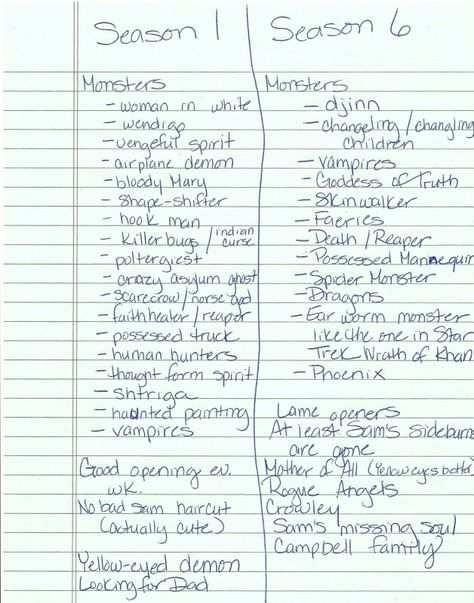 Season 1
Monsters
- woman in white
- wendigo
- vengeful spirit
- airplane demon
- bloody Mary
- Shape-shifter
- hook man
- Killer bugs / indian curse
- poltergiest
- crazy asylum ghost
- scarecrow / norse god
- faith healer / reaper
- possessed truck
- human hunters
- thought form spirit
- shtriga
- haunted painting
- vampires
Good opening ev. wk.
No bad sam haircut
(actually cute)
Yellow-eyed demon
Looking for Dad
Season 6
Monsters
- djinn
- changeling / changling
children
- vampires
- Goddess of Truth
- Skinwalker
- Faeries
- Death / Reaper
- Possessed Mannequin
- Spider Monster
- Dragons
- Ear worm monster
like the one in Star
Trek Wrath of Khan
- Phoenix
Lame openers
At least Sam's sideburns
are gone
Mother of All (Yellow eyes betta)
Rogue Angels
Crowley
Sam's misssing soul
Campbell family